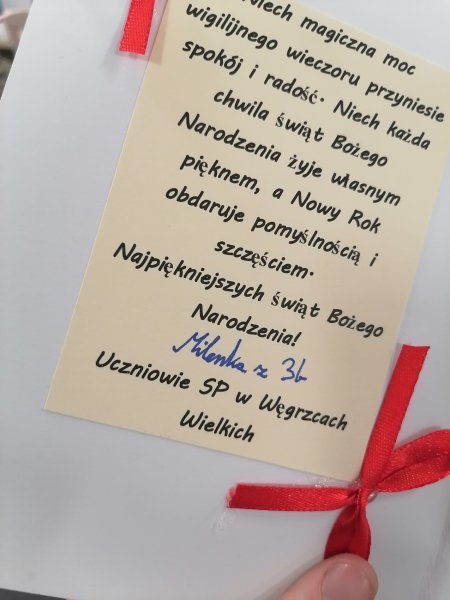 Niech magiczna moc
wigilijnego wieczoru przyniesie
spokój i radość. Niech każda
chwila świąt Bożego
Narodzenia żyje własnym
pięknem, a Nowy Rok
obdaruje pomyślnością i
szczęściem.
Najpiękniejszych świąt Bożego
Narodzenia!
Milenka z 3b
Uczniowie SP w Węgrzcach
Wielkich